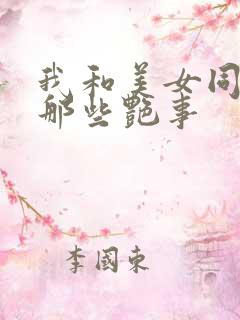 我和美女同
那些艷事
李國東